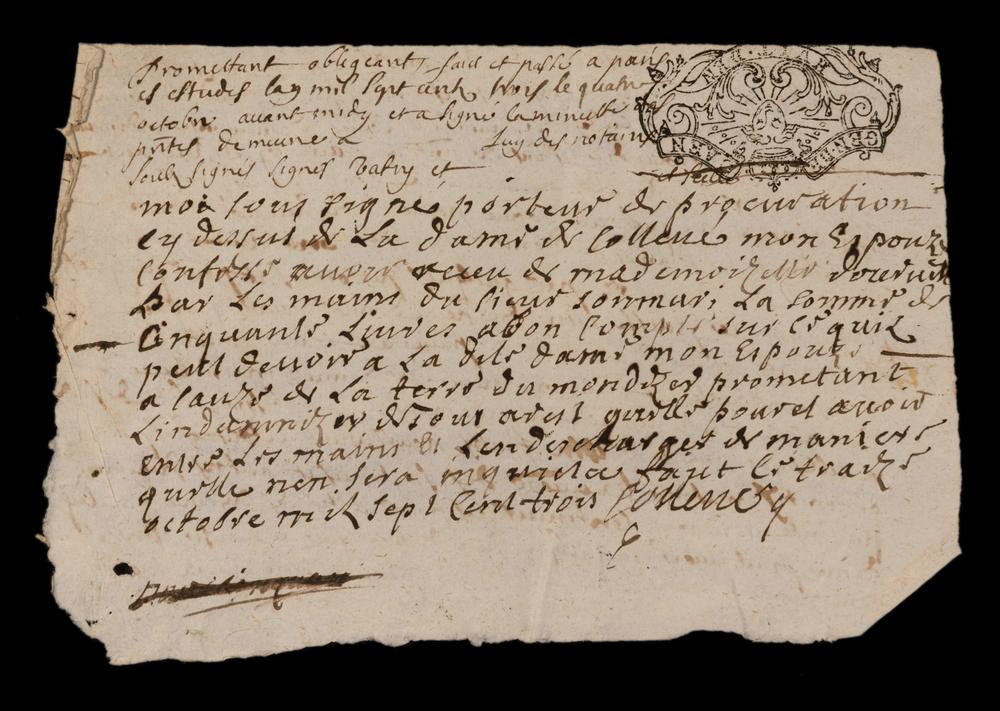 Promettant obligeant fait et passé a paris
es estudes lan mil sept cent trois le quatre
octobre avant midy et a signé la minutte des
pntes demeuré a luy des notaires
soub signés signés Vatry et
moi sous signé porteur de procuration
cy dessus de La dame de Colleué mon Espouze
Confesse avoir receu de mademoizelle
par Les mains du sieur son mari La somme de
Cinquante Livres a bon Compte sur Ce quil
peut devoir a La dite dame mon Espouze
a Cauze de La terre du mondizer prometant
Lindemnizer de Tout arest quelle pouret avoir
entre Les mains Et Len descharger de maniere
quelle nen sera inquietee faut Le traize
octobre mil sept Cent trois Colleue
GEN DE CAEN